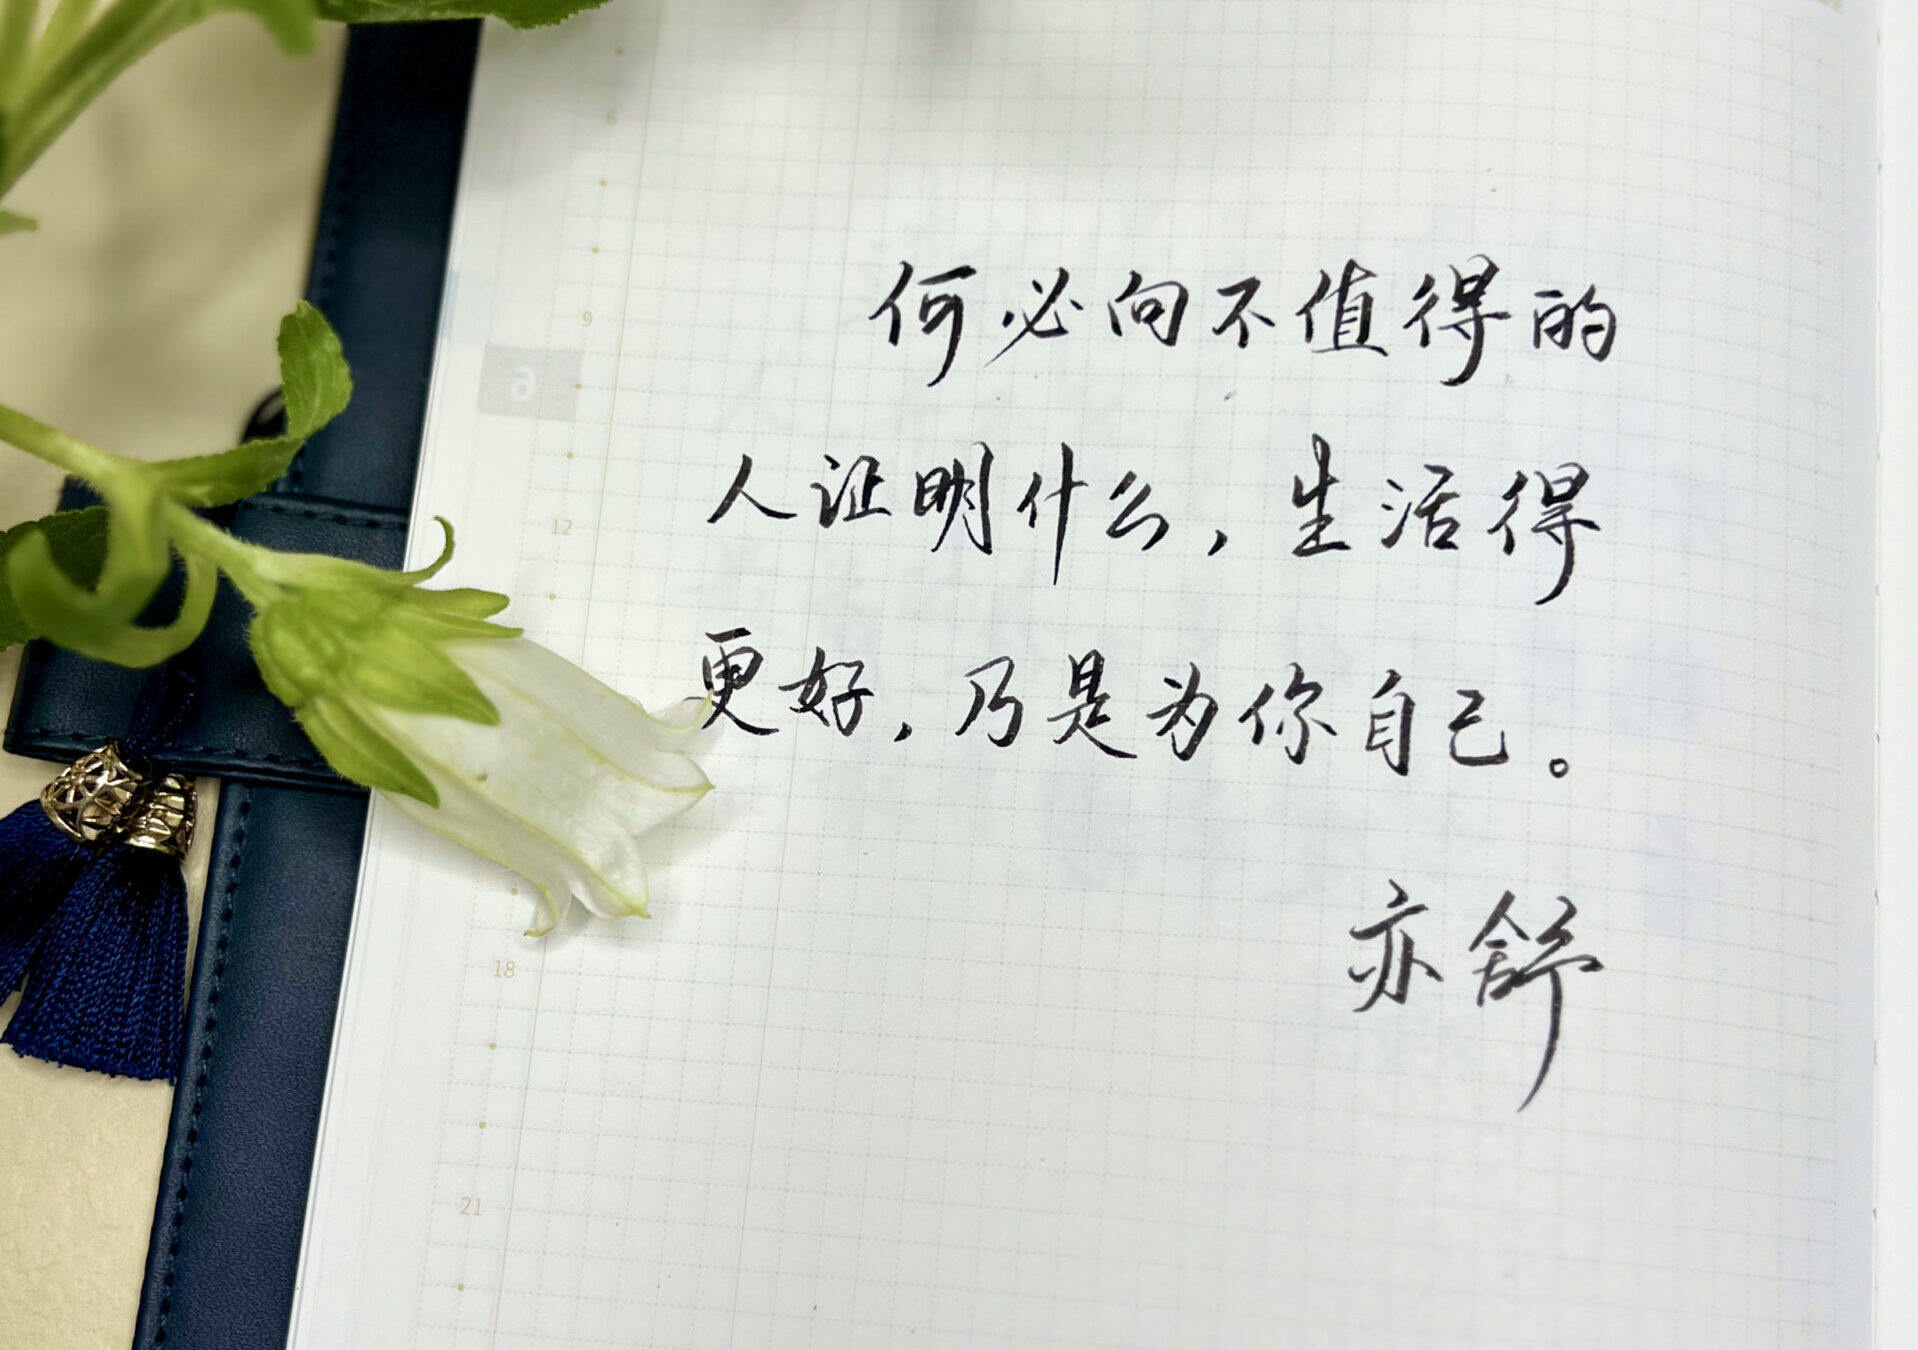 6
9
6
何必向不值得的
人证明什么，生活得
12
更好，乃是为你自己。
亦舒
18
21